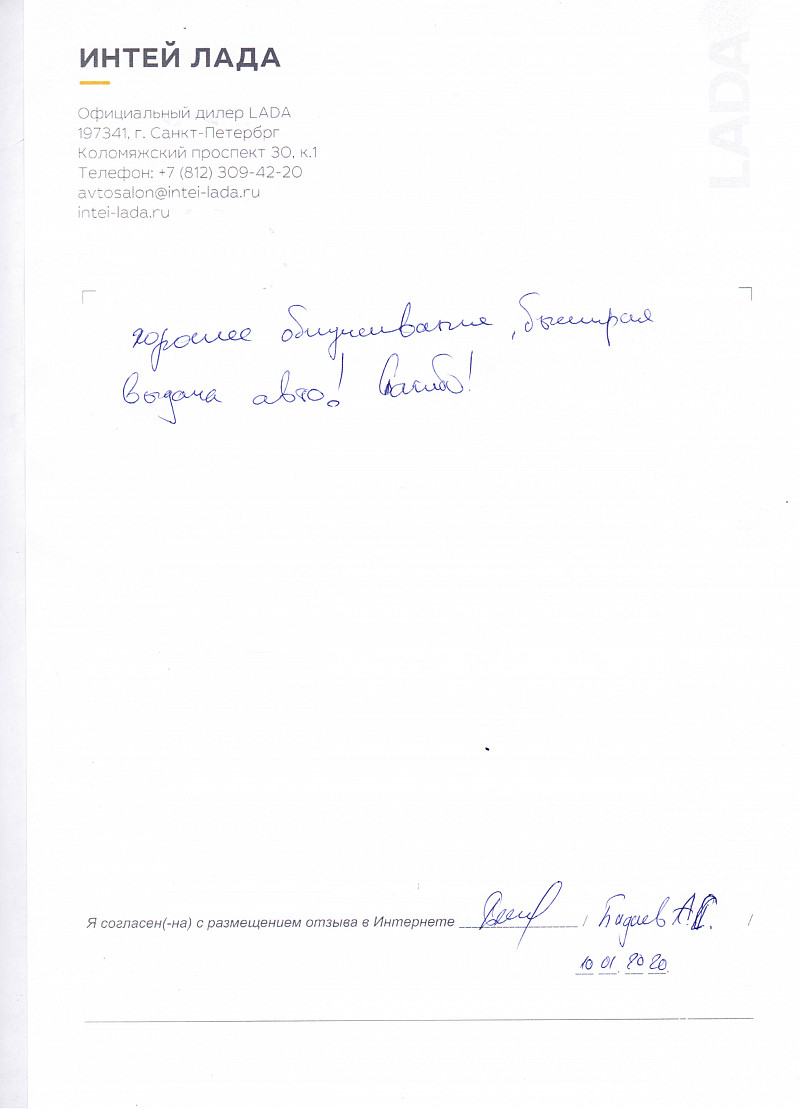 ИНТЕЙ ЛАДА
LADA
Официальный дилер LADA
197341, г. Санкт-Петербрг
Коломяжский проспект 30, к.1
Телефон: +7 (812) 309-42-20
avtosalon@intei-lada.ru
intei-lada.ru
хорошее обслуживание, быстрая
выдача авто! Спасибо!
Я согласен(-на) с размещением отзыва в Интернете / Бадаев А. /
10 01. 20 20.